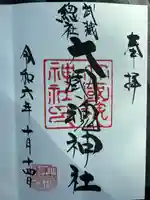 奉拝
武蔵
總社
大國魂神社
令和六年十月十四日